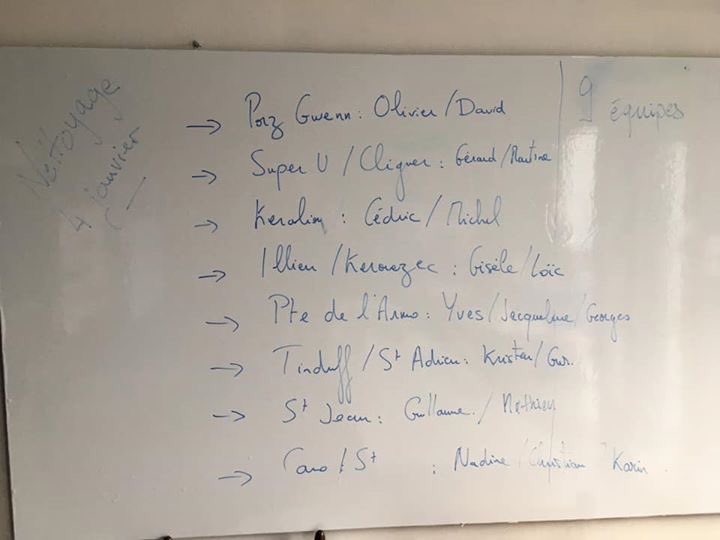 Nettoyage
4 janvier
9 équipes
→ Porz Gwenn : Olivier / David
→ Super U / Cliquer : Gérard / Martine
→ Keralion : Cédric / Michel
→ Illien / Kerourzec : Gisèle / Loïc
→ Pte de l'Armo : Yves / Jacqueline / Georges
→ Tinduff / St Adrien : Kristen / Gur.
→ St Jean : Guillaume / Mathieu
→ / St : Nadine / Christian / Karin